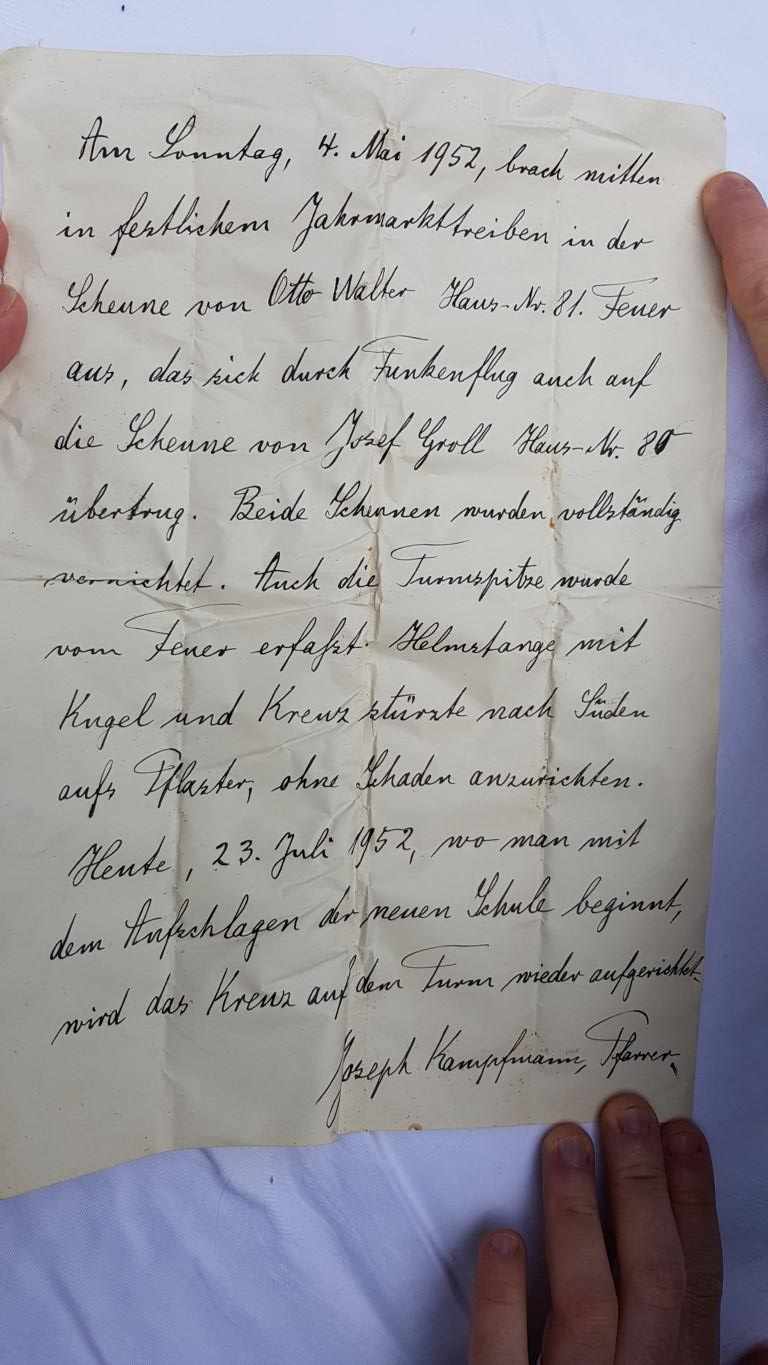 Am Sonntag, 4. Mai 1952, brach mitten
in festlichem Jahrmarkttreiben in der
Scheune von Otto Walter Haus-Nr. 81. Feuer
aus, das sich durch Funkenflug auch auf
die Scheune von Josef Groll Haus-Nr. 80
übertrug. Beide Scheunen wurden vollständig
vernichtet. Auch die Turmspitze wurde
vom Feuer erfaßt. Helmstange mit
Kugel und Kreuz stürzte nach Süden
aufs Pflaster, ohne Schaden anzurichten.
Heute, 23. Juli 1952, wo man mit
dem Aufschlagen der neuen Schule beginnt,
wird das Kreuz auf dem Turm wieder aufgerichtet.
Joseph Kampfmann, Pfarrer.